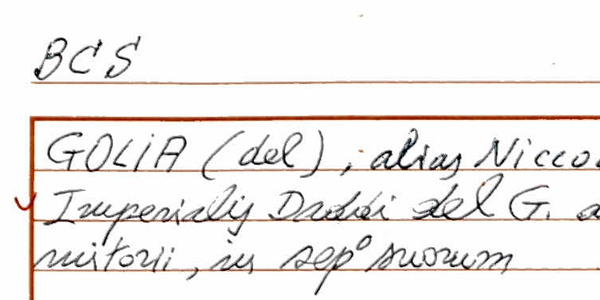 BCS
GOLIA (del), alias Nicco
Imperialis Daddi del G. a
mitorii, in sepº suorum